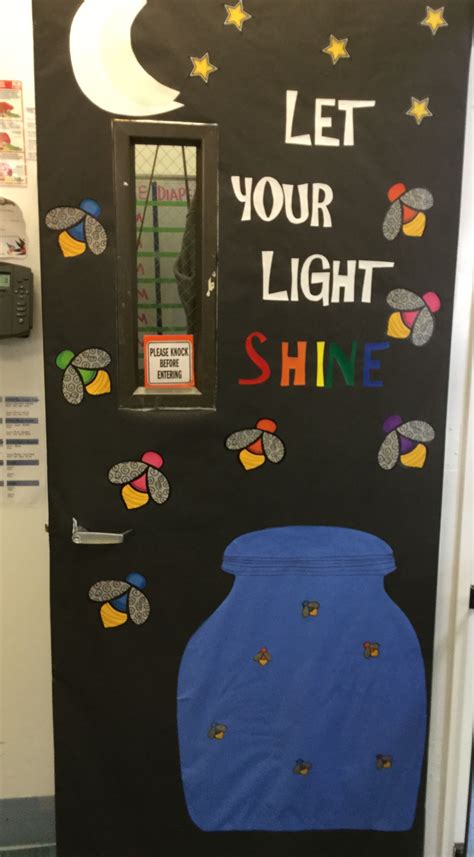 LET
YOUR
LIGHT
SHINE
PLEASE KNOCK
BEFORE
ENTERING